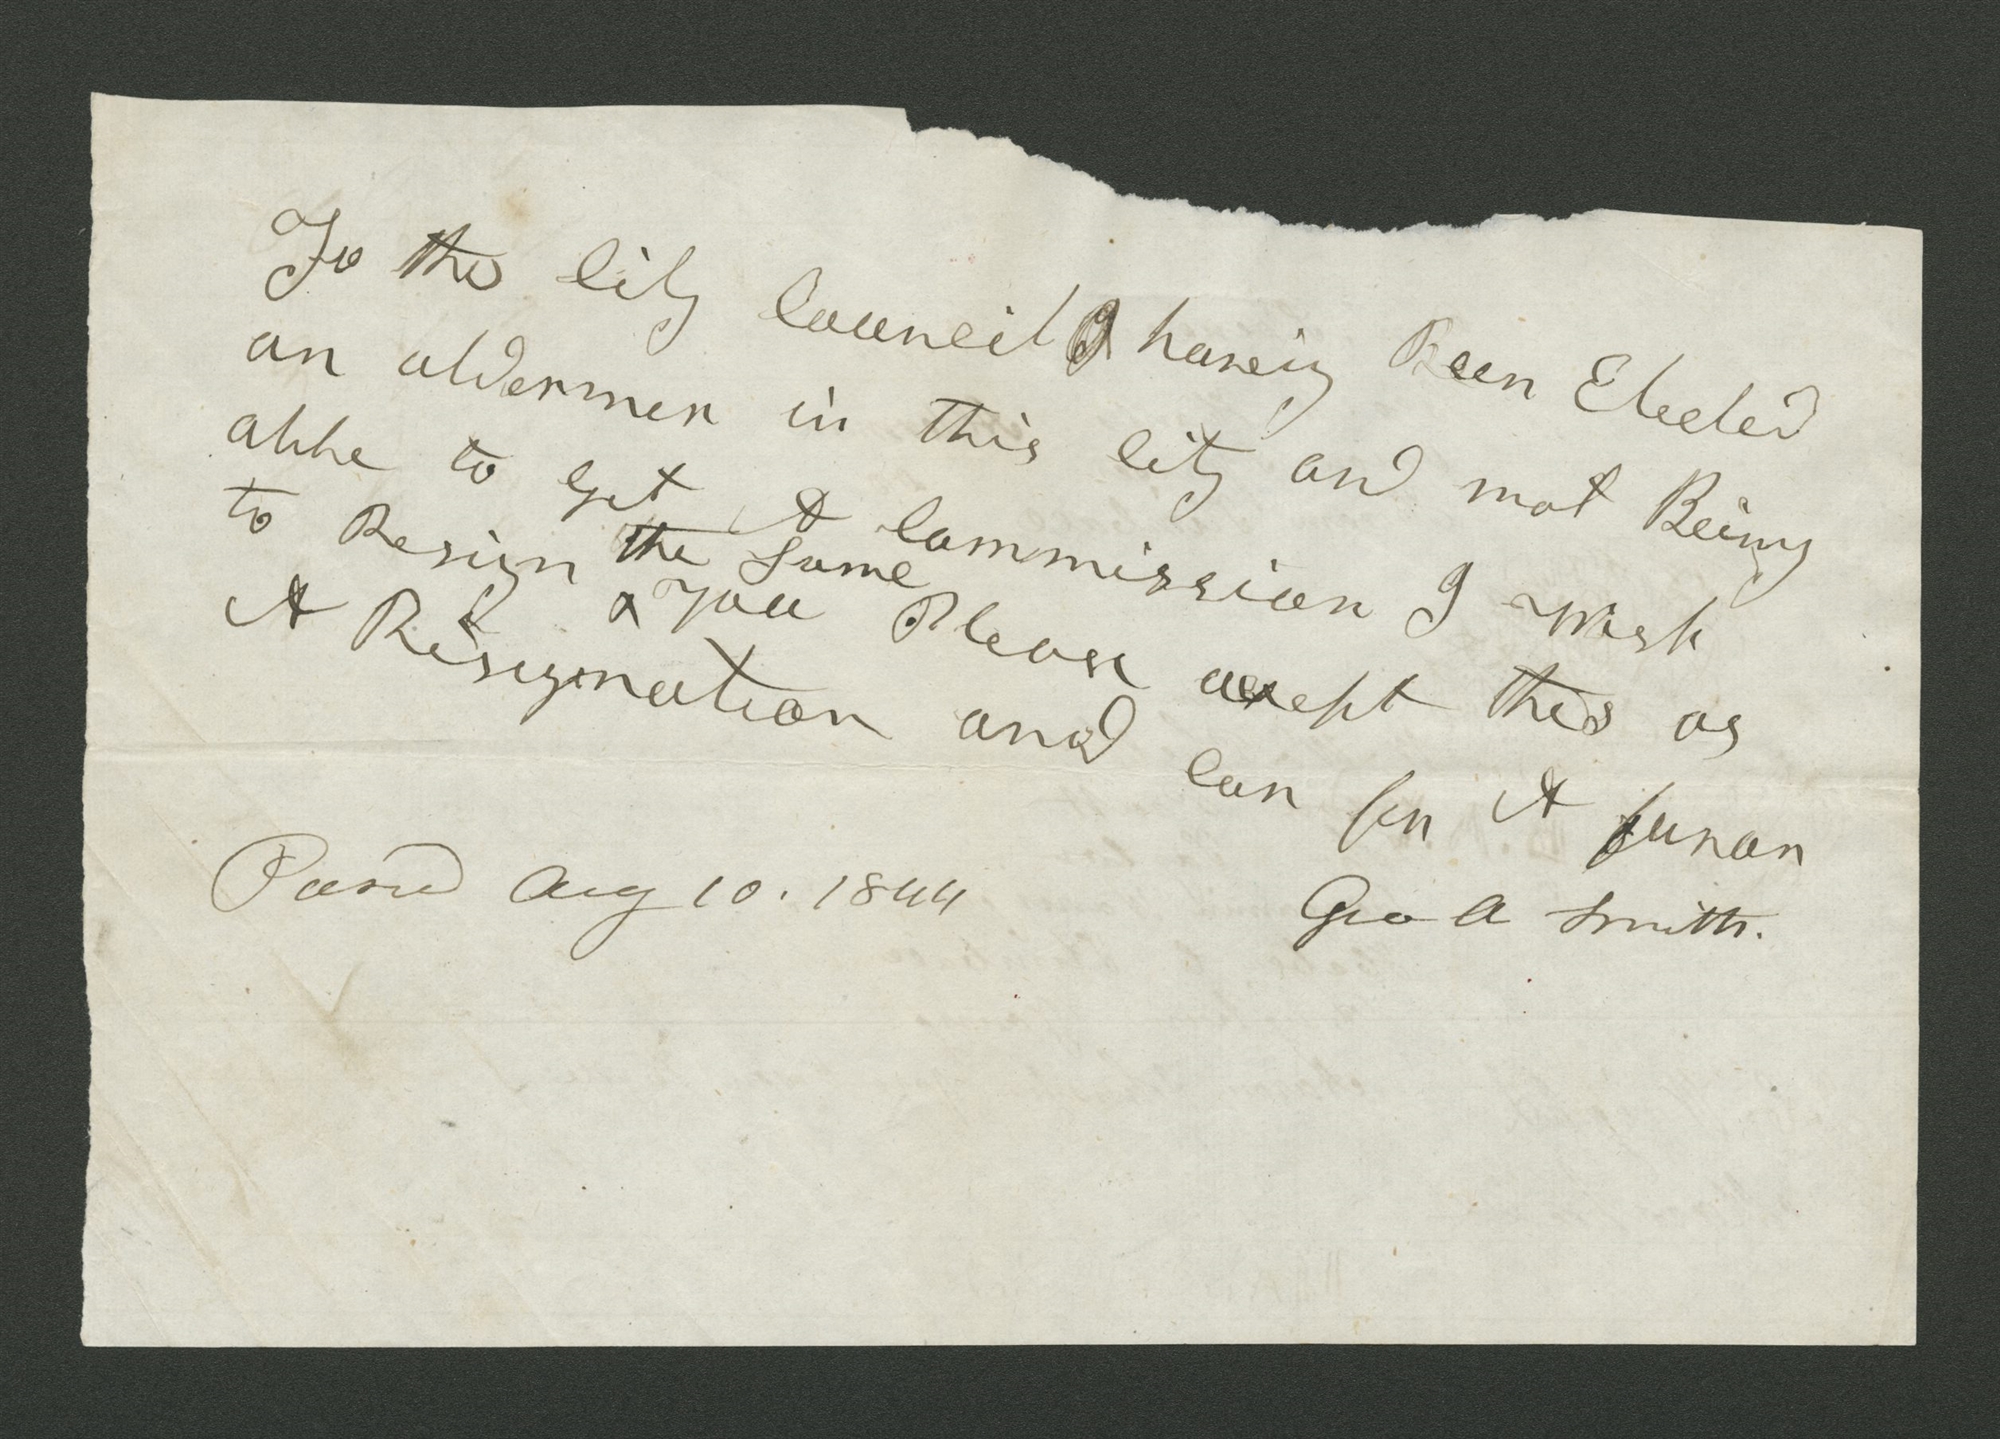 To the City Council I haveig Been Elected
an aldermen in this City and not Being
abhe to get A Commission I wish
to Resign the same
& you Please accept this as
A Resignation and Con fer A furon
Pasd Aug 10. 1844
Geo A Smith.